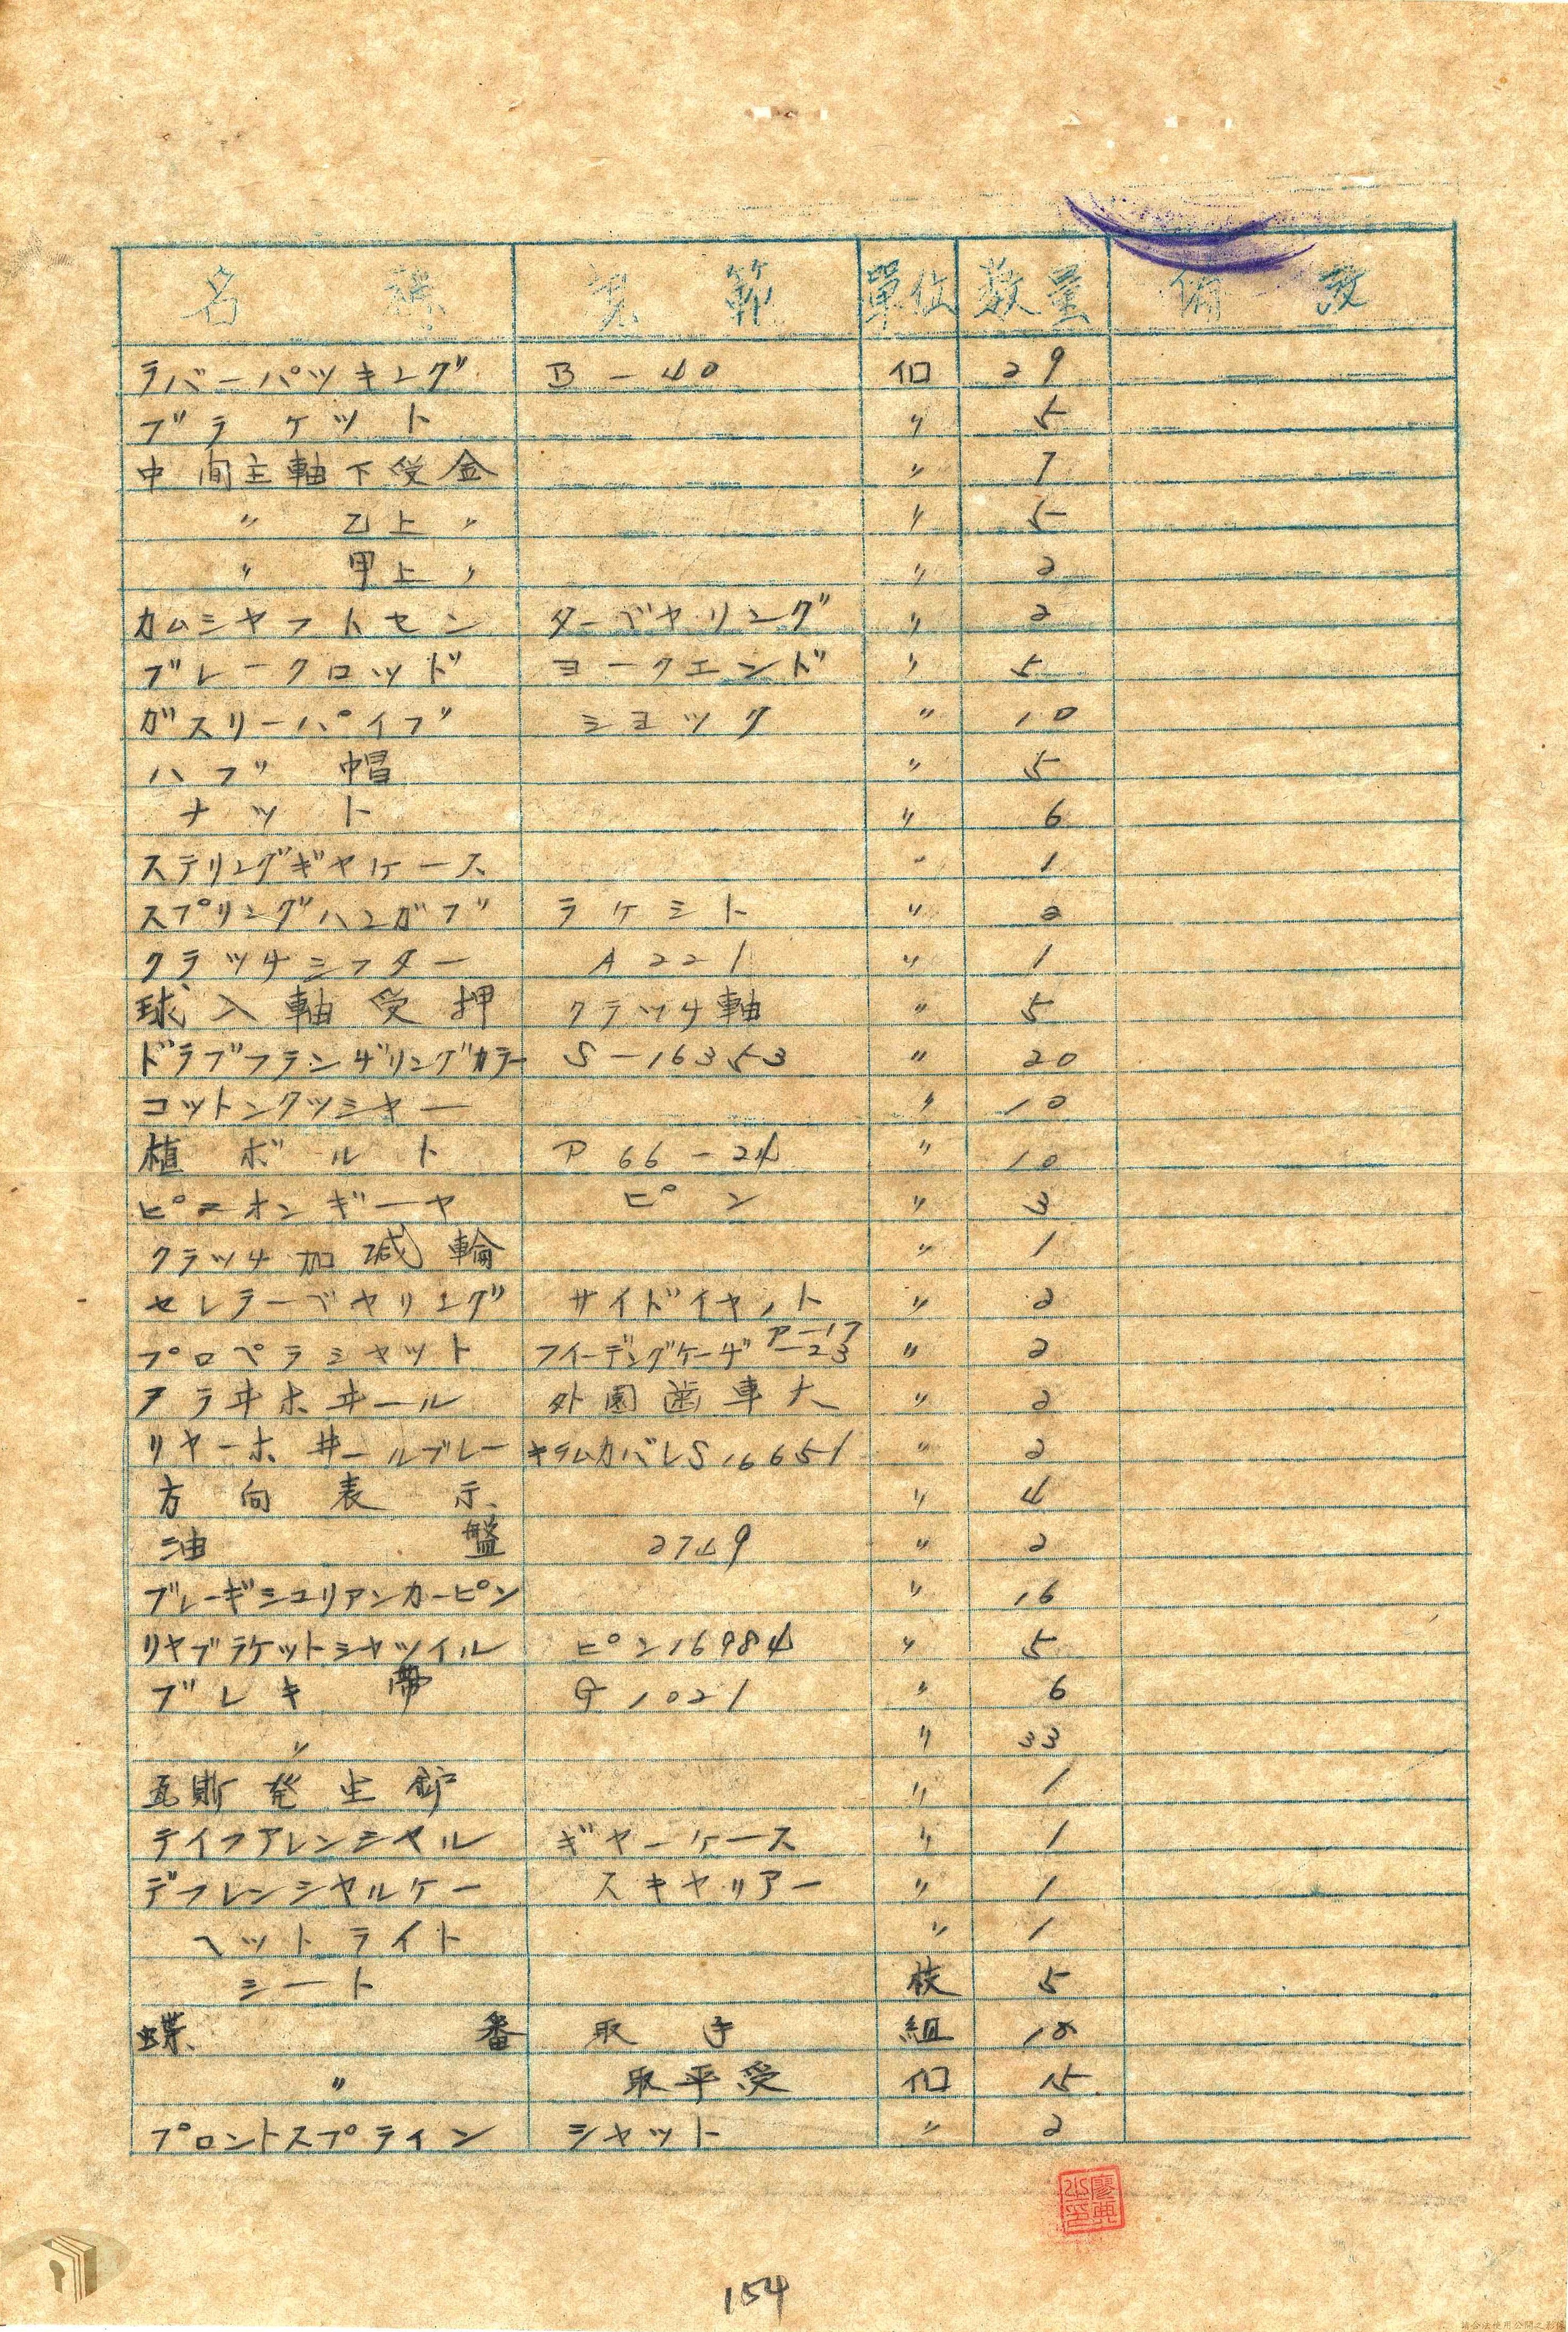 名稱 規範 單位 数量 備攷
ラバーパツキング B－40 個 29
ブラケツト 〃 5
中間主軸下受金 〃 7
〃 乙上 〃 〃 5
〃 甲上 〃 〃 2
カムシヤフトセン ターベヤリング 〃 2
ブレークロツド ヨークエンド 〃 5
ガスリーパイプ シヨツク 〃 10
ハブ 帽 〃 5
ナツト 〃 6
ステリングギヤケース 〃 1
スプリングハンガブ ラケシト 〃 2
クラツチシフター A221 〃 1
球入軸受押 クラツチ軸 〃 5
ドラブフランヂリングカラー S－16353 〃 20
コットンクツシヤー 〃 10
植ボルト P66－24 〃 10
ピニオンギーヤ ピン 〃 3
クラツチ加減輪 〃 1
セレラーベヤリング サイドイヤノト 〃 2
プロペラシヤツト フイーデングケーヂ ア－17 －23 〃 2
フラヰホヰール 外園歯車大 〃 2
リヤーホヰールブレー キラムカバレS16651 〃 2
方向表示 〃 4
油盤 2749 〃 2
ブレーギシユリアンカーピン 〃 16
リヤブラケットシヤツイル ピン16984 〃 5
ブレキ帯 G1021 〃 6
〃 〃 33
瓦斯発生炉 〃 1
テイフアレンシヤル ギヤーケース 〃 1
デフレンシヤルケー スキヤリアー 〃 1
ヘツトライト 〃 1
シート 枚 5
蝶番 取手 組 10
〃 取平受 個 15
プロントスプライン シヤット 〃 2
154